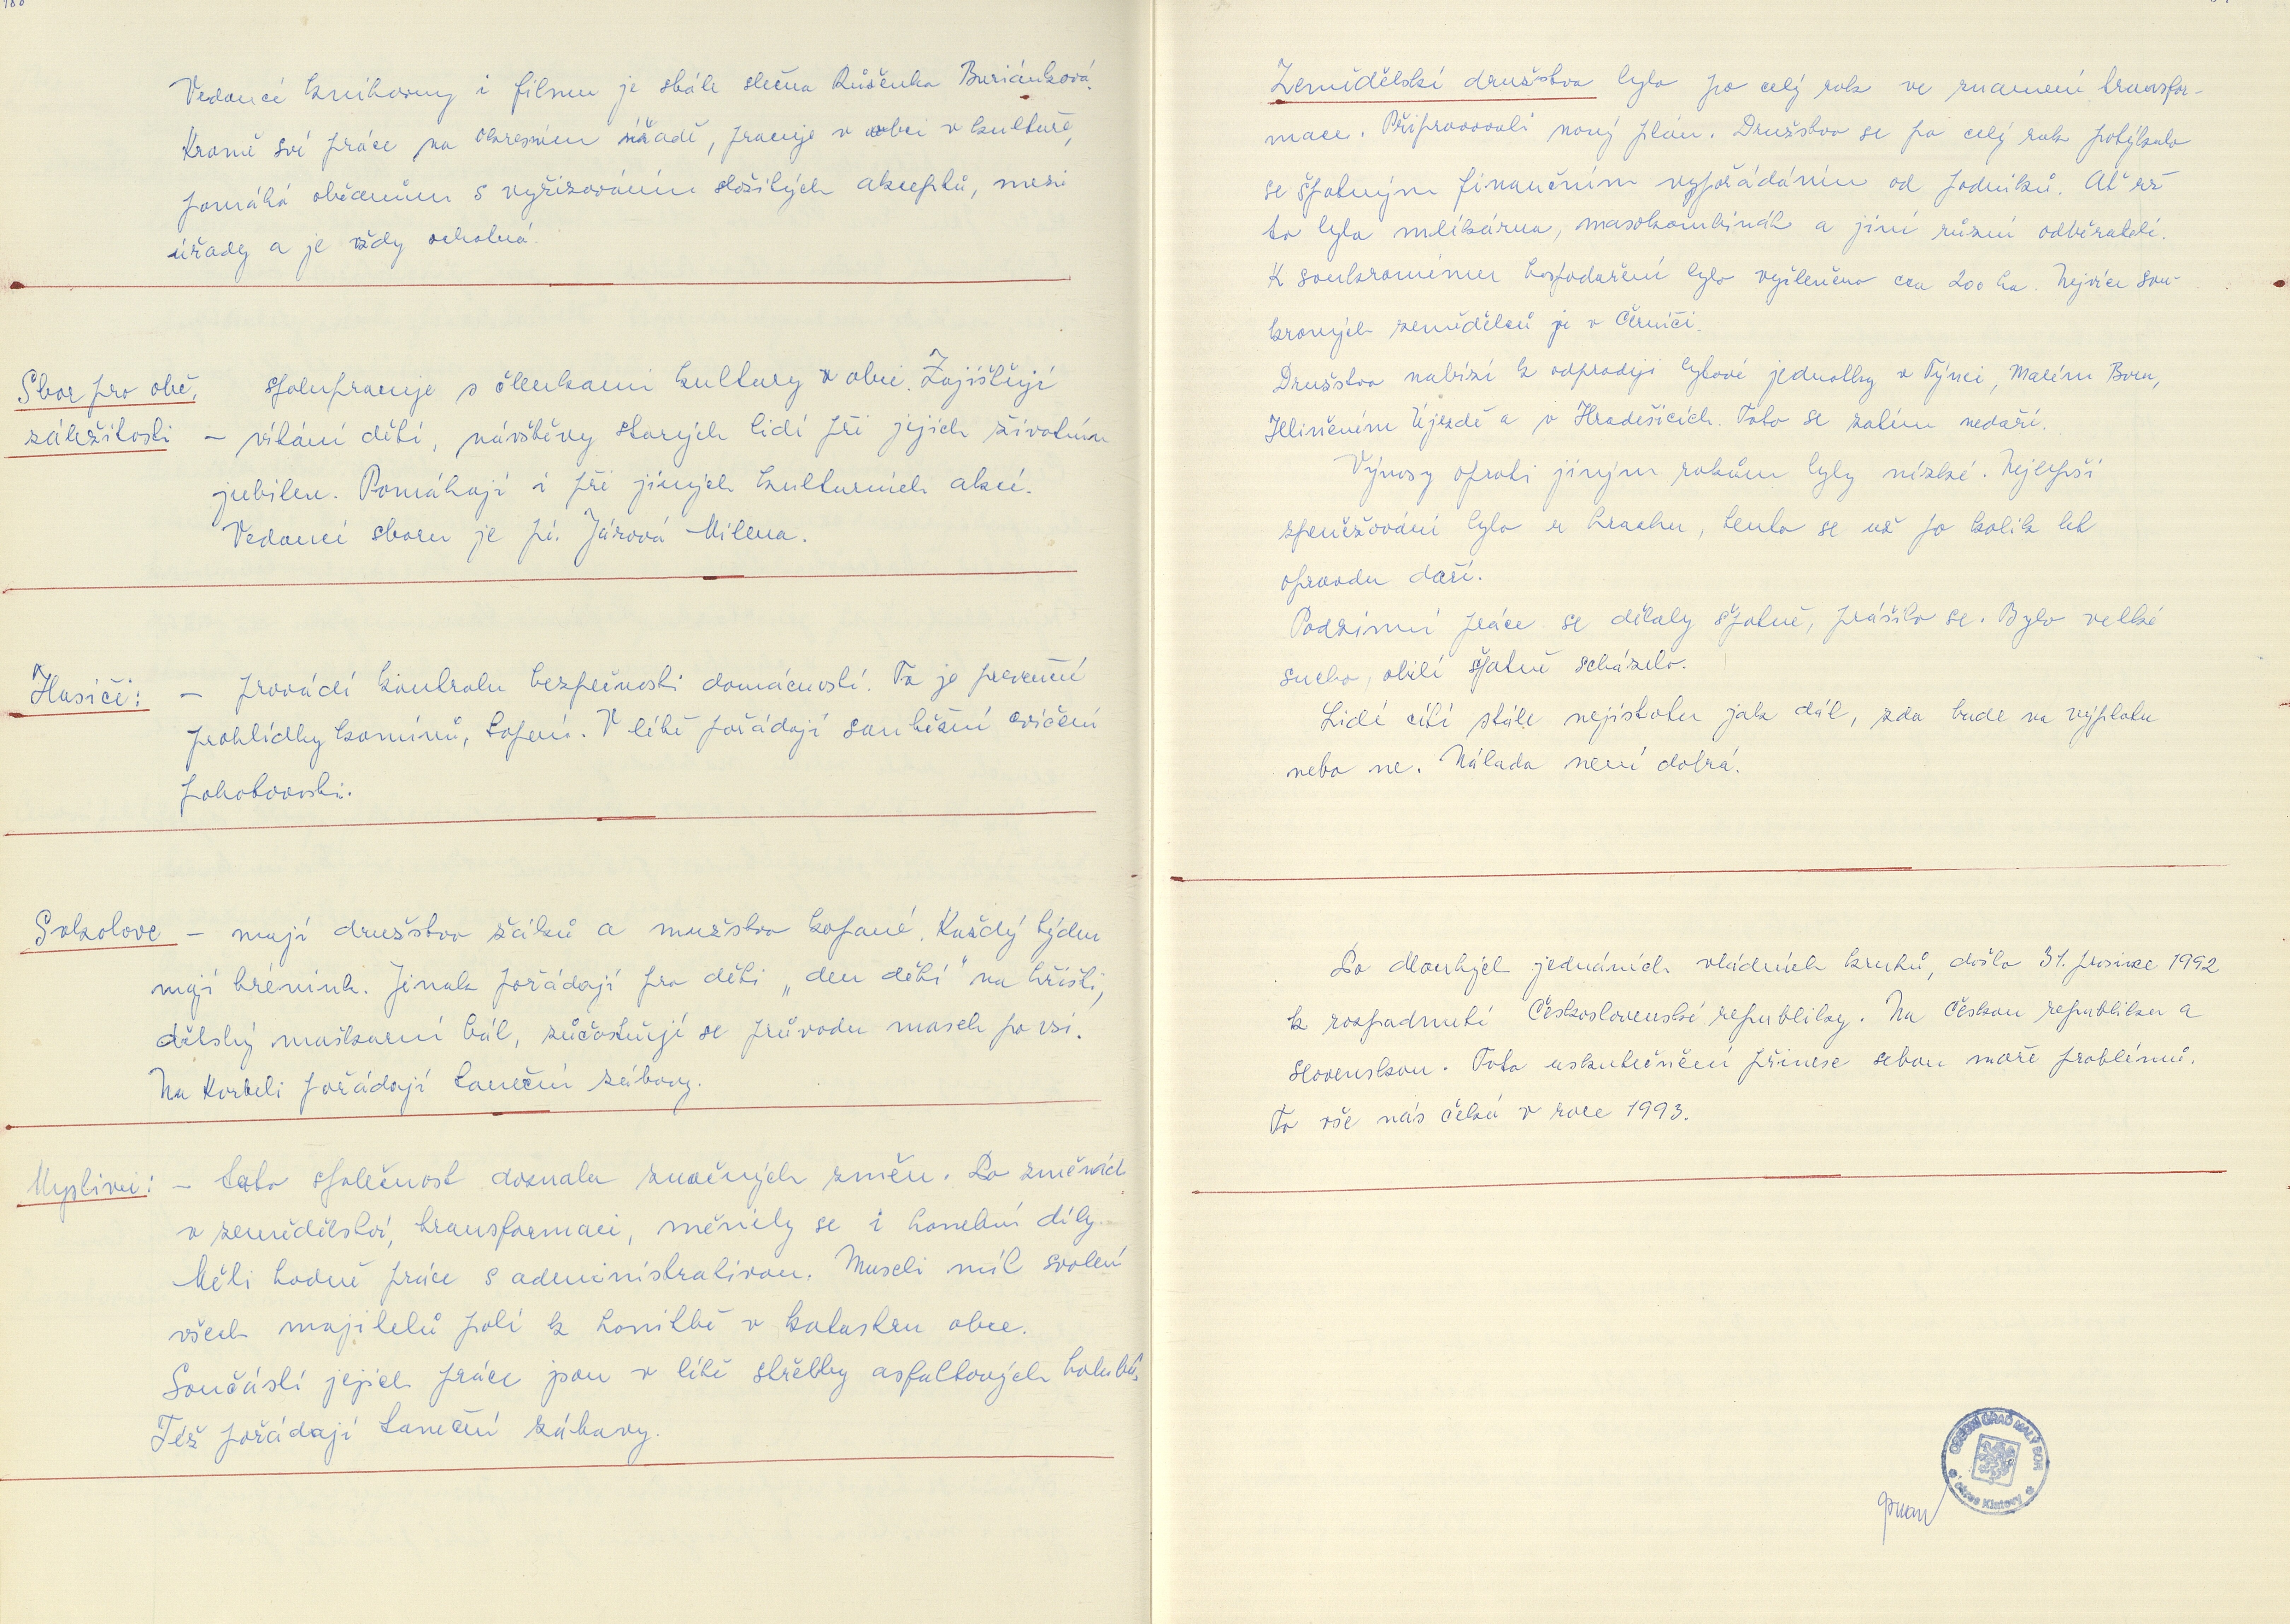 180
Vedoucí knihovny i filmu je stále slečna Růženka Buriánková.
Kromě své práce na okresním úřadě, pracuje v obci v kultuře,
pomáhá občanům s vyřizováním složitých akceptů, mezi
úřady a je vždy ochotná.
Sbor pro obč. spolupracuje s členkami kultury v obci. Zajišťují
záležitosti – vítání dětí, návštěvy starých lidí při jejich životním
jubileu. Pomáhají i při jiných kulturních akcí.
Vedoucí sboru je pí. Járová Milena.
Hasiči: – provádí kontrolu bezpečnosti domácností. To je prevenční
prohlídky komínů, topení. V létě pořádají soutěžní cvičení
pohotovosti.
Sokolove – mají družstvo žáků a mužstvo kopané. Každý týden
mají trénink. Jinak pořádají pro děti „den dětí" na hřišti,
dětský maškarní bál, zúčastňují se průvodu masek po vsi.
Na Korbeli pořádají taneční zábavy.
Myslivci: – tato společnost doznala značných změn. Po změnách
v zemědělství, transformaci, měnily se i honební díly.
Měli hodně práce s administrativou. Museli mít svolení
všech majitelů polí k honitbě v katastru obce.
Součástí jejich práce jsou v létě střelby asfaltových holubů.
Též pořádají taneční zábavy.
Zemědělské družstvo bylo po celý rok ve znamení transfor-
mace. Připravovali nový plán. Družstvo se po celý rok potýkalo
se špatným finančním vypořádáním od podniků. Ať už
to byla mlékárna, masokombinát a jiní různí odběratelé.
K soukromému hospodaření bylo vyčleněno cca 200 ha. Nejvíce sou-
kromých zemědělců je v Černíči.
Družstvo nabízí k odprodeji bytové jednotky v Týnci, Malém Boru,
Hliněném Újezdě a v Hradešicích. Toto se zatím nedaří.
Výnosy oproti jiným rokům byly nízké. Nejlepší
zpeněžování bylo u hrachu, tento se už po kolik let
opravdu daří.
Podzimní práce se dělaly špatně, prášilo se. Bylo velké
sucho, obilí špatně scházelo.
Lidé cítí stále nejistotu jak dál, zda bude na výplatu
nebo ne. Nálada není dobrá.
Po dlouhých jednáních vládních kruhů, došlo 31. prosince 1992
k rozpadnutí Československé republiky. Na Českou republiku a
Slovenskou. Toto uskutečnění přinese sebou moře problémů.
To vše nás čeká v roce 1993.
OBECNÍ ÚŘAD MALÝ BOR
okres Klatovy